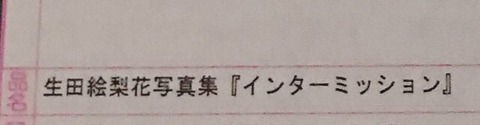 生田絵梨花写真集『インターミッション』